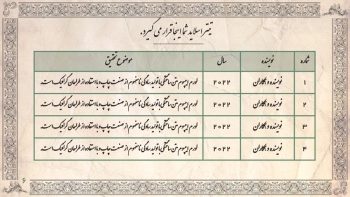 تیتر اسلاید شما اینجا قرار می گیرد.
شماره نویسنده سال موضوع تحقیق
۱ نویسنده و همکاران ۲۰۲۲ لورم ایپسوم متن ساختگی با تولید سادگی نامفهوم از صنعت چاپ و با استفاده از طراحان گرافیک است.
۲ نویسنده و همکاران ۲۰۲۲ لورم ایپسوم متن ساختگی با تولید سادگی نامفهوم از صنعت چاپ و با استفاده از طراحان گرافیک است.
۳ نویسنده و همکاران ۲۰۲۲ لورم ایپسوم متن ساختگی با تولید سادگی نامفهوم از صنعت چاپ و با استفاده از طراحان گرافیک است.
۴ نویسنده و همکاران ۲۰۲۲ لورم ایپسوم متن ساختگی با تولید سادگی نامفهوم از صنعت چاپ و با استفاده از طراحان گرافیک است.
۶